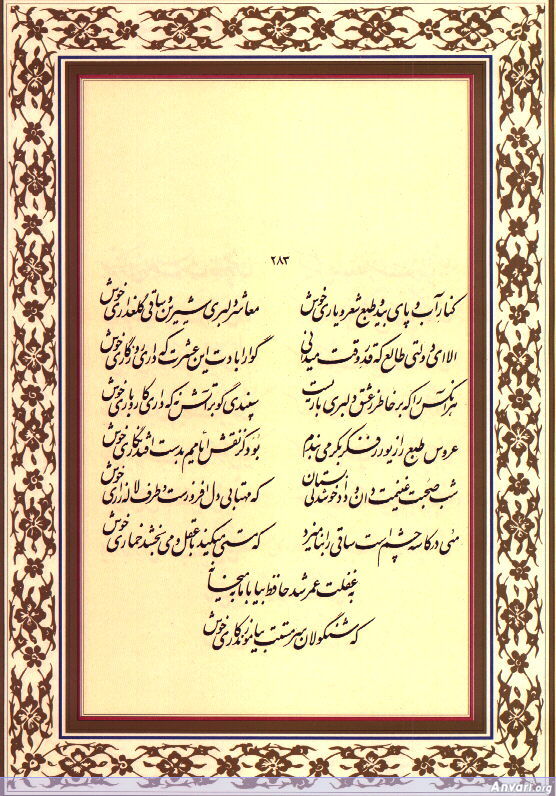 ۲۸۳
کنار آب و پای بید و طبع شعر و یاری خوش معاشر دلبری شیرین و ساقی گلعذاری خوش
الا ای دولتی طالع که قدر وقت میدانی گوارا بادت این عشرت که داری روزگاری خوش
هر آنکس را که بر خاطر ز عشق دلبری باریست سپندی گو بر آتش نه که داری کار و باری خوش
عروس طبع را زیور ز فکر بکر می بندم بود کز نقش ایامم بدست افتد نگاری خوش
شب صحبت غنیمت دان و داد خوشدلی بستان که مهتابی دل افروزست و طرف لاله زاری خوش
میی در کاسه چشم است ساقی را بنامیزد که مستی میکند با عقل و می بخشد خماری خوش
به غفلت عمر شد حافظ بیا با ما به میخانه
که شنگولان سرمستت بیاموزند کاری خوش
Anvari.org